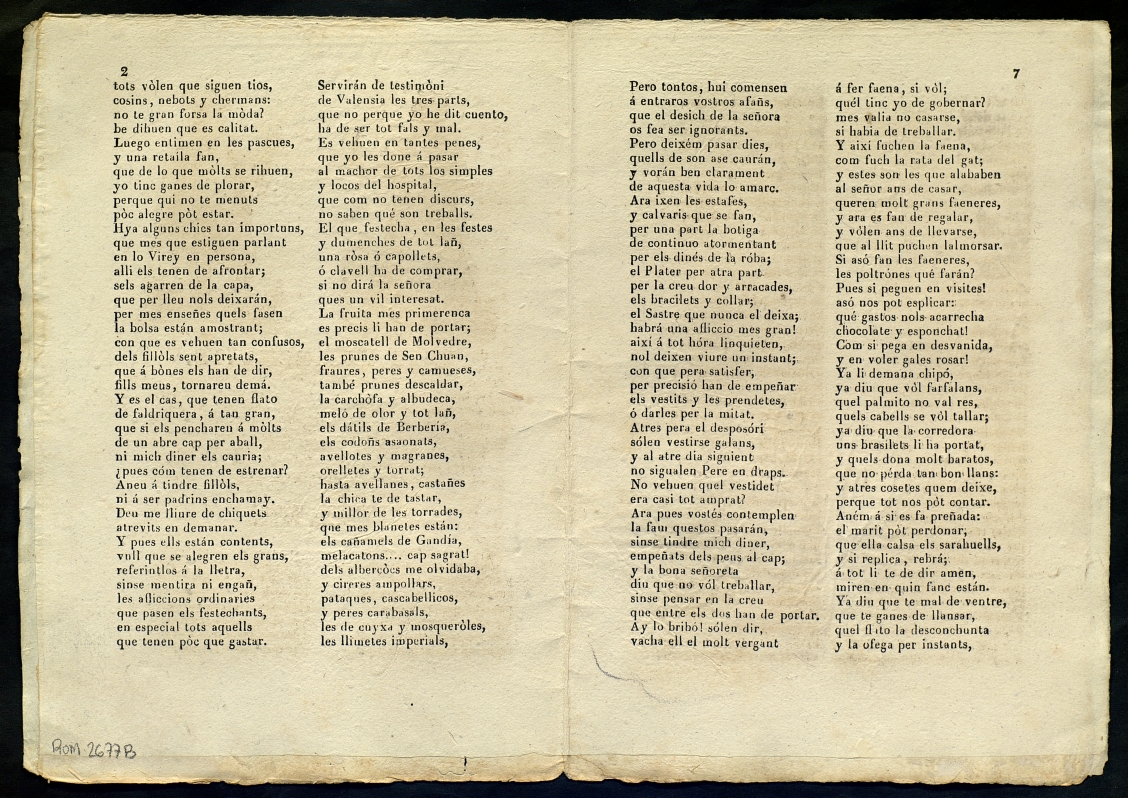 2
tots vòlen que siguen tios,
cosins, nebots y chermans:
no te gran forsa la mòda?
be dihuen que es calitat.
Luego entimen en les pascues,
y una retaila fan,
que de lo que mòlts se rihuen,
yo tinc ganes de plorar,
perque qui no te menuts
pòc alegre pòt estar.
Hya alguns chics tan importuns,
que mes que estiguen parlant
en lo Virey en persona,
alli els tenen de afrontar;
sels agarren de la capa,
que per lleu nols deixarán,
per mes enseñes quels fasen
la bolsa están amostrant;
con que es vehuen tan confusos,
dels fillòls sent apretats,
que á bònes els han de dir,
fills meus, tornareu demá.
Y es el cas, que tenen flato
de faldriquera, á tan gran,
que si els pencharen á mòlts
de un abre cap per aball,
ni mich diner els cauria;
¿pues còm tenen de estrenar?
Aneu á tindre fillòls,
ni á ser padrins enchamay.
Deu me lliure de chiquets
atrevits en demanar.
Y pues ells están contents,
vull que se alegren els grans,
referintlos á la lletra,
sinse mentira ni engañ,
les afliccions ordinaries
que pasen els festechants,
en especial tots aquells
que tenen pòc que gastar.
Servirán de testimòni
de Valensia les tres parts,
que no perque yo he dit cuento,
ha de ser tot fals y mal.
Es vehuen en tantes penes,
que yo les done á pasar
al machor de tots los simples
y locos del hospital,
que com no tenen discurs,
no saben qué son treballs.
El que festecha, en les festes
y dumenches de tot lañ,
una ròsa ó capollets,
ó clavell ha de comprar,
si no dirá la señora
ques un vil interesat.
La fruita mes primerenca
es precis li han de portar;
el moscatell de Molvedre,
les prunes de Sen Chuan,
fraures, peres y camueses,
també prunes descaldar,
la carchòfa y albudeca,
meló de olor y tot lañ,
els dátils de Berberia,
els codoñs asaonats,
avellotes y magranes,
orelletes y torrat;
hasta avellanes, castañes
la chica te de tastar,
y millor de les torrades,
que mes blanetes están:
els cañamels de Gandía,
melacatons.... cap sagrat!
dels albercòcs me olvidaba,
y cireres ampollars,
pataques, cascabellicos,
y peres carabasals,
les de cuyxa y mosqueròles,
les llimetes imperials,
7
Pero tontos, hui comensen
á entraros vostros afañs,
que el desich de la señora
os fea ser ignorants.
Pero deixém pasar dies,
quells de son ase caurán,
y vorán ben clarament
de aquesta vida lo amarc.
Ara ixen les estafes,
y calvaris que se fan,
per una part la botiga
de continuo atormentant
per els dinés de la róba;
el Plater per atra part
per la creu dor y arracades,
els bracilets y collar;
el Sastre que nunca el deixa;
habrá una afliccio mes gran!
així á tot hóra linquieten,
nol deixen viure un instant;
con que pera satisfer,
per precisió han de empeñar
els vestits y les prendetes,
ó darles per la mitat.
Atres pera el desposóri
sólen vestirse galans,
y al atre día siguient
no sigualen Pere en draps.
No vehuen quel vestidet
era casi tot amprat?
Ara pues vostés contemplen
la fam questos pasarán,
sinse tindre mich diner,
empeñats dels peus al cap;
y la bona señoreta
diu que no vól treballar,
sinse pensar en la creu
que entre els dos han de portar.
Ay lo bribó! sólen dir,
vacha ell el molt vergant
á fer faena, si vòl;
quél tinc yo de gobernar?
mes valia no casarse,
si habia de treballar.
Y així fuchen la faena,
com fuch la rata del gat;
y estes son les que alababen
al señor ans de casar,
queren molt grans faeneres,
y ara es fan de regalar,
y vólen ans de llevarse,
que al llit puchen lalmorsar.
Si asó fan les faeneres,
les poltrónes qué farán?
Pues si peguen en visites!
asó nos pot esplicar:
qué gastos nols acarrecha
chocolate y esponchat!
Com si pega en desvanida,
y en voler gales rosar!
Ya li demana chipó,
ya diu que vòl farfalans,
quel palmito no val res,
quels cabells se vòl tallar;
ya diu que la corredora
uns brasilets li ha portat,
y quels dona molt baratos,
que no pérda tan bon llans:
y atres cosetes quem deixe,
perque tot nos pòt contar.
Aném á si es fa preñada:
el marit pòt perdonar,
que ella calsa els sarahuells,
y si replica, rebrá;
á tot li te de dir amen,
miren en quin fanc están.
Ya diu que te mal de ventre,
que te ganes de llansar,
quel flato la desconchunta
y la ofega per instants,
ROM 2677B